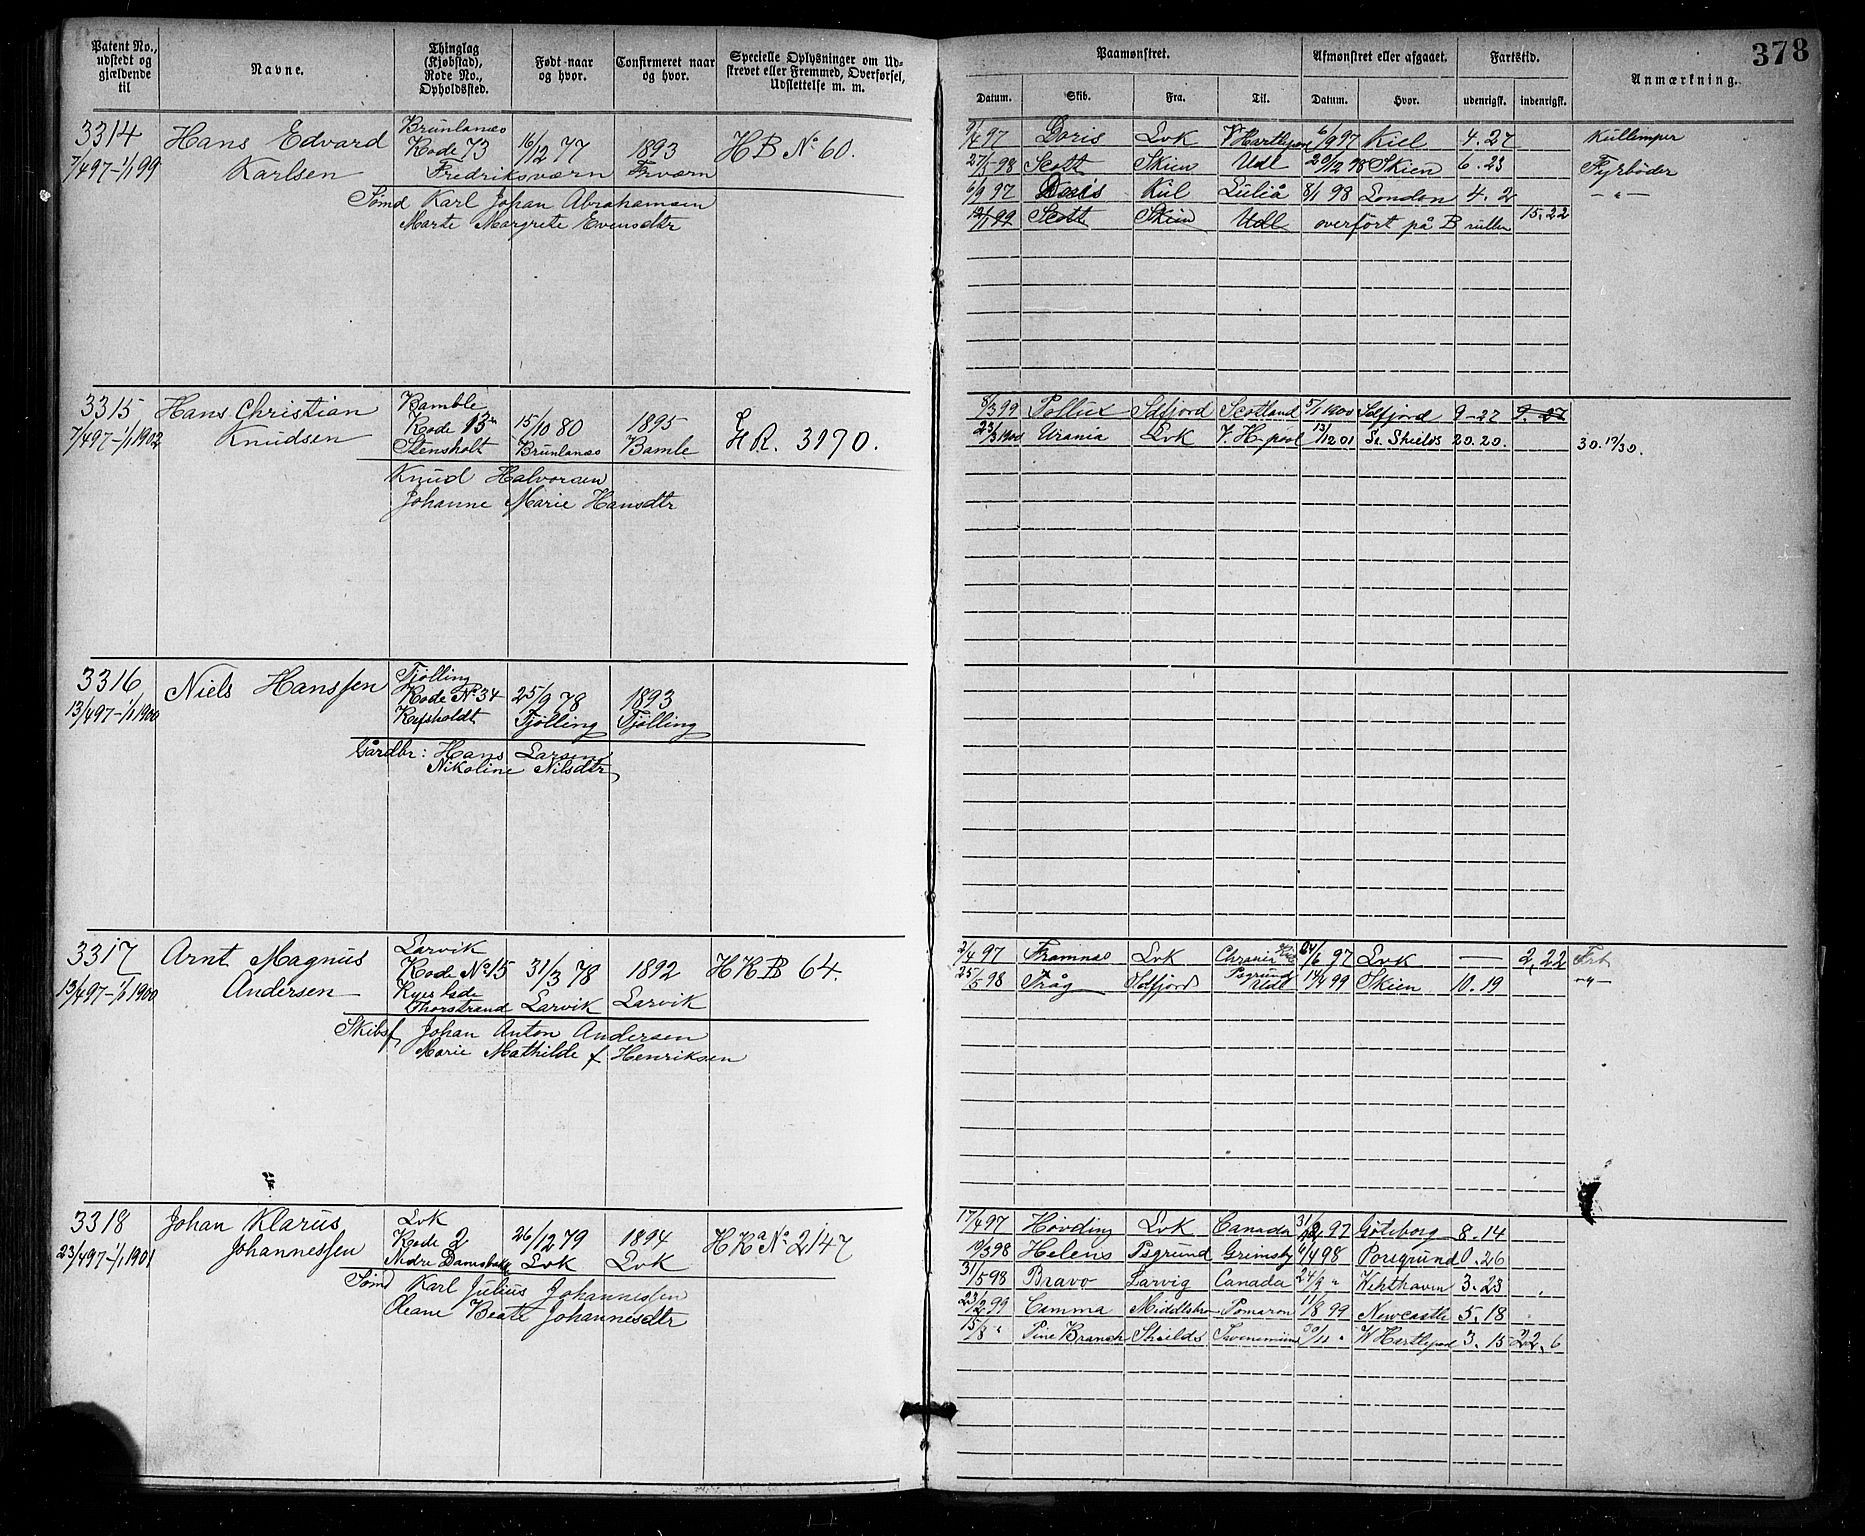 378
Patent No., udstedt og gjældende til
Navne.
Thinglag (Kjøbstad), Rode No., Opholdssted.
Født naar og hvor.
Confirmeret naar og hvor.
Specielle Oplysninger om Udskrevet eller Fremmed, Overførsel, Udslettelse m. m.
Paamønstret.
Afmønstret eller afgaaet.
Fartstid.
Anmærkning.
Datum. Skib. Fra. Til. Datum. Hvor. udenrigsk. indenrigsk.
3314 Hans Edvard Brunlanæs
7/4 97-1/1 99 Karlsen Rode 73 16/12 77 1893 H B No 60.
Fredriksværn Frværn
Sømd Karl Johan Abrahamsen
Marte Margrete Evensdtr
9/4 97 Doris Lvk V Hartlepool 6/9 97 Kiel 4. 27 Kullemper
27/5-98 Scott Skien Udl 20/12 98 Skien 6. 23 Fyrbøder
6/9 97 Doris Kiel Luleå 8/1 98 London 4. 2 - " -
12/1 99 Scott Skien Udl overført på B rullen 15. 22
3315 Hans Christian Bamble
7/4 97-1/1 1902 Knudsen Rode 13 15/10 80 1895 H R. 3170.
Stensholt Brunlanæs Bamle
Knud Halvorsen
Johanne Marie Hansdtr
8/3 99 Pollux Sdfjord Scotland 5/1 1900 Sdfjord 9-27 9-27
23/3 1900 Urania Lvk V. H-pool 13/12 01 So. Shields 20. 20. 30. 17/30.
3316 Niels Hanssen Tjølling
13/4 97-1/1 1900 Rode No 34 25/9 78 1893
Tjølling Tjølling
Gårdbr: Hans Larsen
Nikoline Nilsdtr
3317 Arnt Magnus Larvik
13/4 97-1/1 1900 Andersen Rode No 15 31/3 78 1892 H K B 64.
Thorstrand Larvik Larvik
Skibsf. Johan Anton Andersen
Marie Mathilde f. Henriksen
2/4 97 Framnæs Lvk 24/6 97 Lvk — 2, 22
25/5 98 Tråg Psgrund Udl 14/4 99 Skien 10. 19 - " -
3318 Johan Klarus Lvk
23/4 97-1/1 1901 Johannessen Rode 2 26/12 79 1894 H Ka No 2147
Nedre Lvk Lvk
Sømd Karl Julius Johannesen
Oleane Beate Johannesdtr
17/4 97 Høvding Lvk Canada 31/12 97 Göteborg 8. 14
10/3 98 Helens Psgrund Grimsby 6/4 98 Porsgrund 0. 26
31/5 98 Bravo Larvig Canada 24/9 " Whthaven 3. 23
23/2 99 Camma Middlsbro Pomaron 11/8 99 Newcastle 5. 18
15/8 " Pine Branch Shields Svenemünde 30/11 " W Hartlepool 3. 15 22. 6